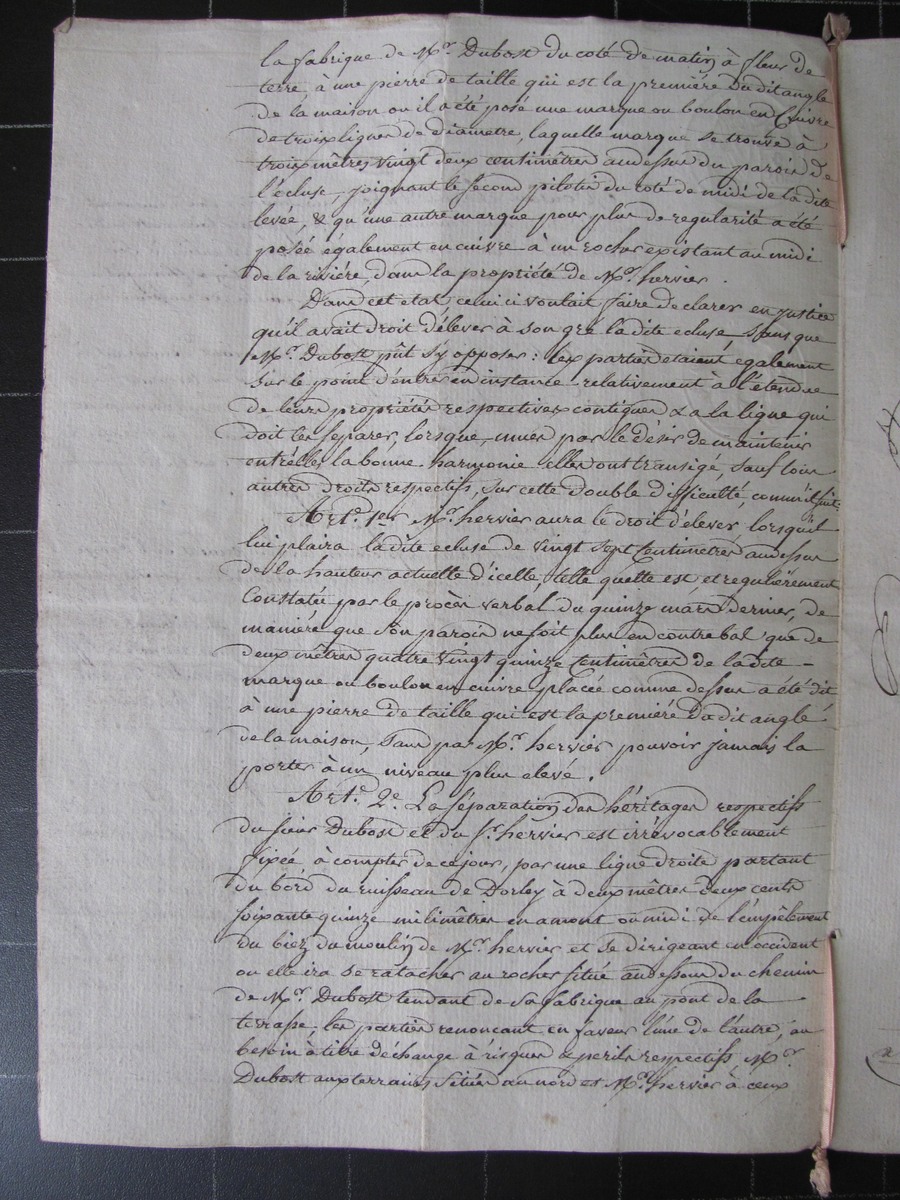 la fabrique de Mr. Dubost du coté de matin à fleur de
terre, à une pierre de taille qui est la premiére du dit angle
de la maison ou il a été posé une marque ou boulon en Cuivre
de trois lignes de diâmetre, laquelle marque se trouve à
trois mêtres vingt deux centimêtres audessus du parois de
l'écluse, joignant le second pilotis du coté de midi de la dite
levée, & qu'une autre marque pour plus de regularité a été
posée également en cuivre à un rocher existant au midi
de la riviére, dans la propriété de Mr. hervier.
Dans cet etat, celui ci voulait faire declarer en justice
qu'il avait droit d'élever à son gré la dite ecluse, sans que
Mr. Dubost pût s'y opposer : les parties etaient également
sur le point d'entrer en instance relativement à l'étendue
de leurs propriétés respectives contigues & a la ligne qui
doit les séparer, lorsque, mues par le désir de maintenir
entr'elles la bonne harmonie elles ont transigé, sauf tous
autres droits respectifs, sur cette double difficulté, comm'il suit.
Art. 1er. Mr. hervier aura le droit d'élever lorsqu'il
lui plaira la dite ecluse de vingt sept Centimétres audessus
de la hauteur actuelle d'icelle, telle quelle est, et regulièrement
Constatée par le procès verbal du quinze mars dernier, de
maniére que son parois ne soit plus en contrebas que de
deux mêtres quatre vingt quinze Centimêtres de la dite -
marque ou boulon en cuivre placée comme dessus a été dit
à une pierre de taille qui est la premiére du dit angle
de la maison, sans par Mr. hervier pouvoir jamais la
porter à un niveau plus elevé.
Art. 2e. La séparation des héritages respectifs
du sieur Dubost et du Sr. hervier est irrévocablement
fixée à compter de ce jour, par une ligne droite partant
du bord du ruisseau de Dorley à deux mêtres deux cents
soixante quinze milimêtres en amont ou midi de l'empêlement
du biez du moulin de Mr. hervier et se dirigeant en occident
ou elle ira se ratacher au rocher situé audessous du chemin
de Mr. Dubost tendant de sa fabrique au pont de la
terrasse, les parties renoncant en faveur l'une de l'autre, au
besoin à titre déchange à risques & perils respectifs Mr.
Dubost aux terrains situés au nord et Mr. hervier à ceux